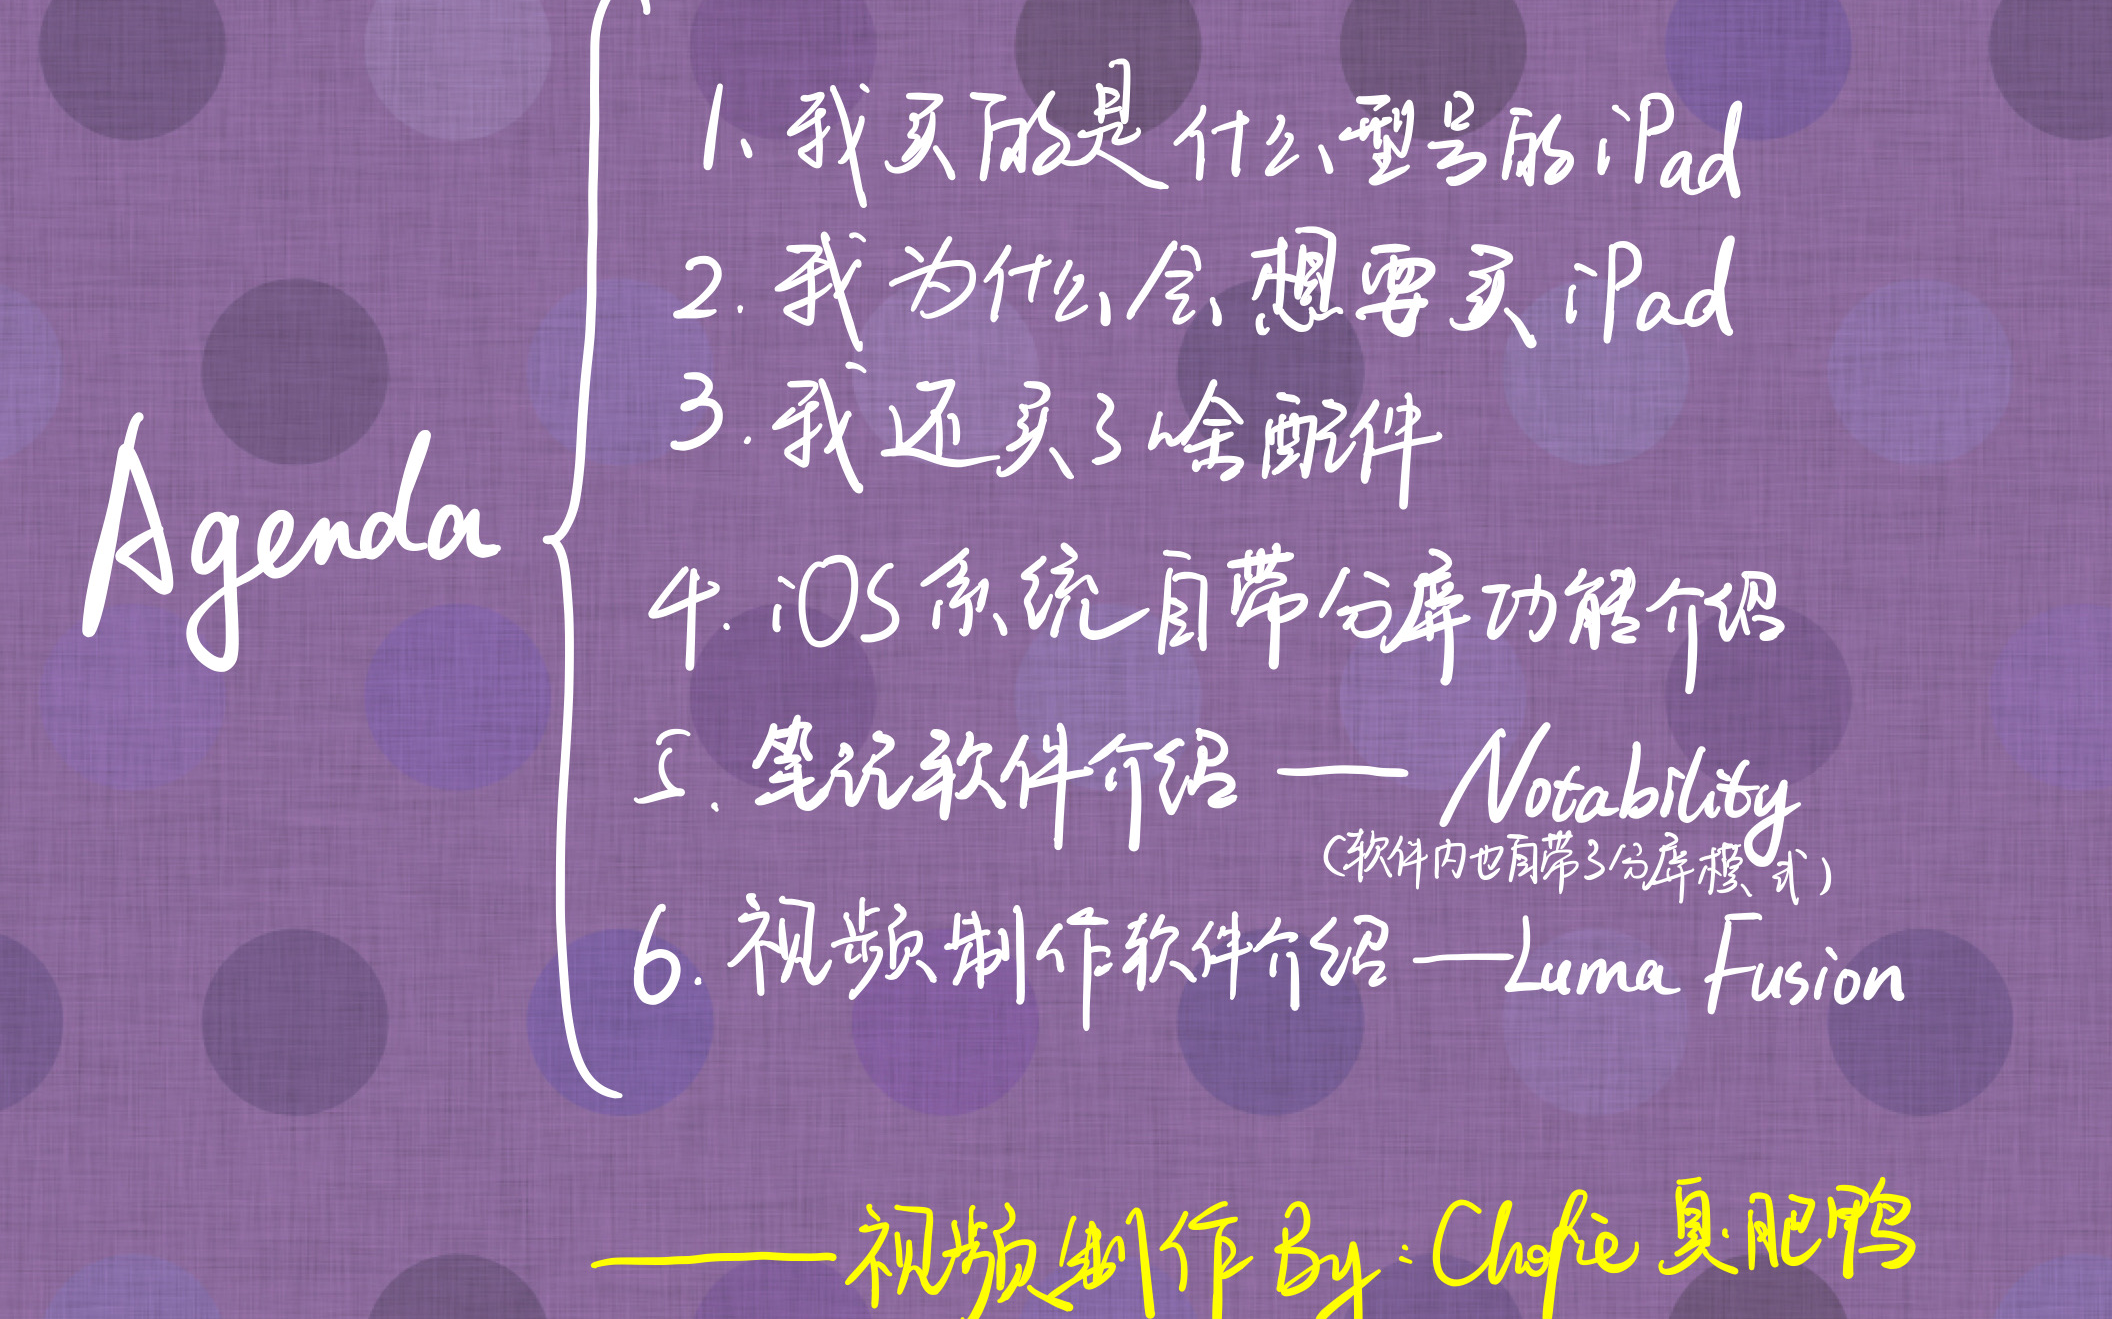 Agenda
1、我买的是什么型号的iPad
2.我为什么会想要买iPad
3.我还买了啥配件
4.iOS系统自带分屏功能介绍
5.笔记软件介绍——Notability
(软件内也自带了分屏模式)
6.视频制作软件介绍——Luma Fusion
——视频制作By:Chofie臭肥鸭